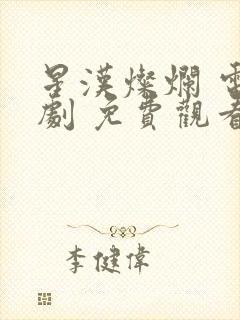 星漢燦爛 電
劇 免費觀看
李健偉